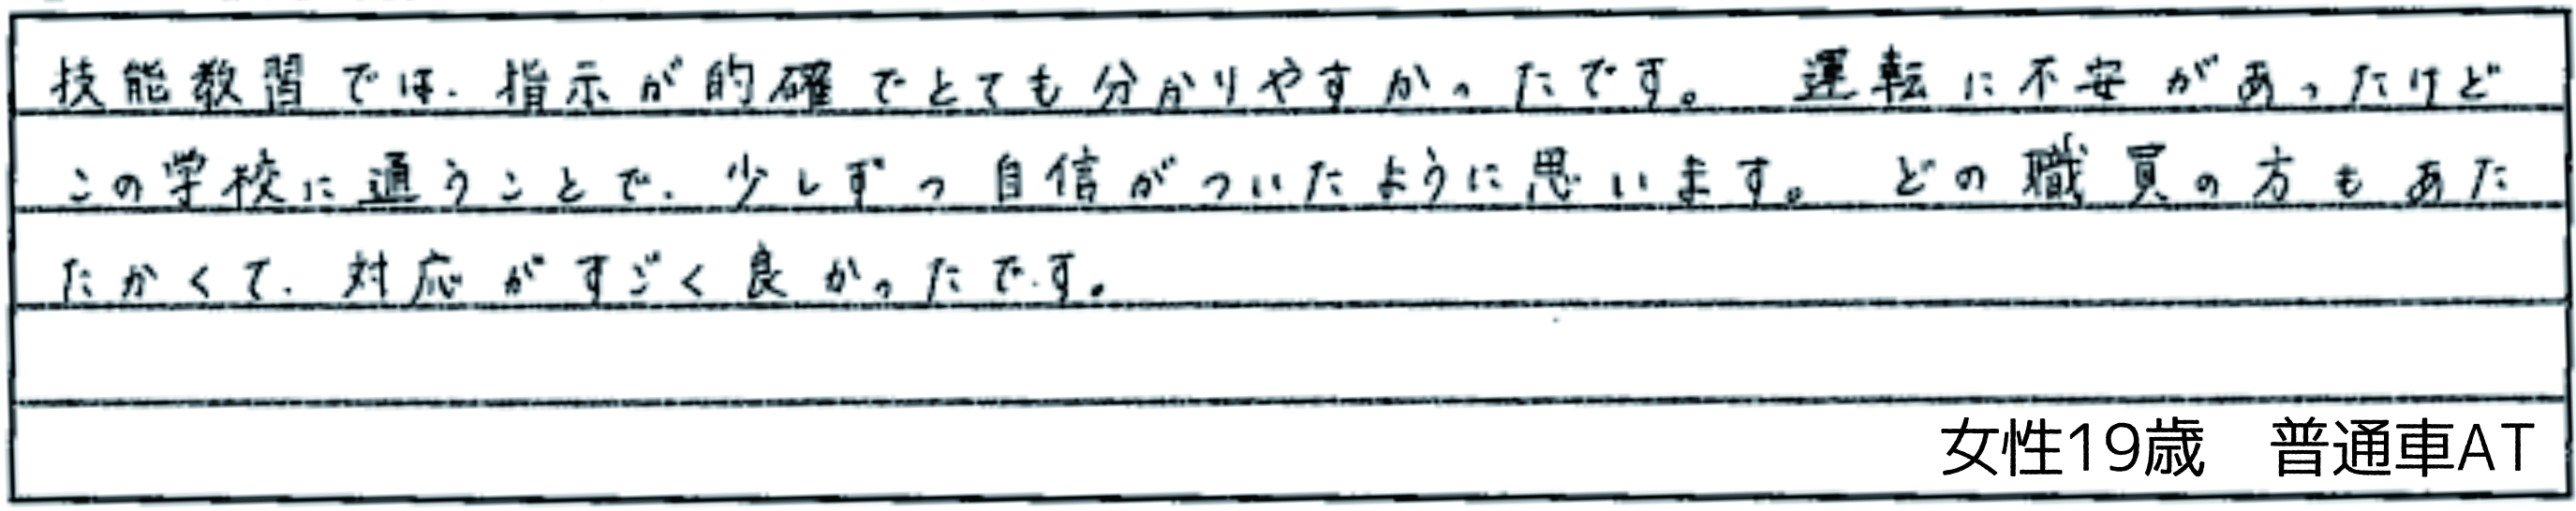 技能教習では、指示が的確でとても分かりやすかったです。 運転に不安があったけど
この学校に通うことで、少しずつ自信がついたように思います。 どの職員の方もあた
たかくて、対応がすごく良かったです。
女性19歳 普通車AT